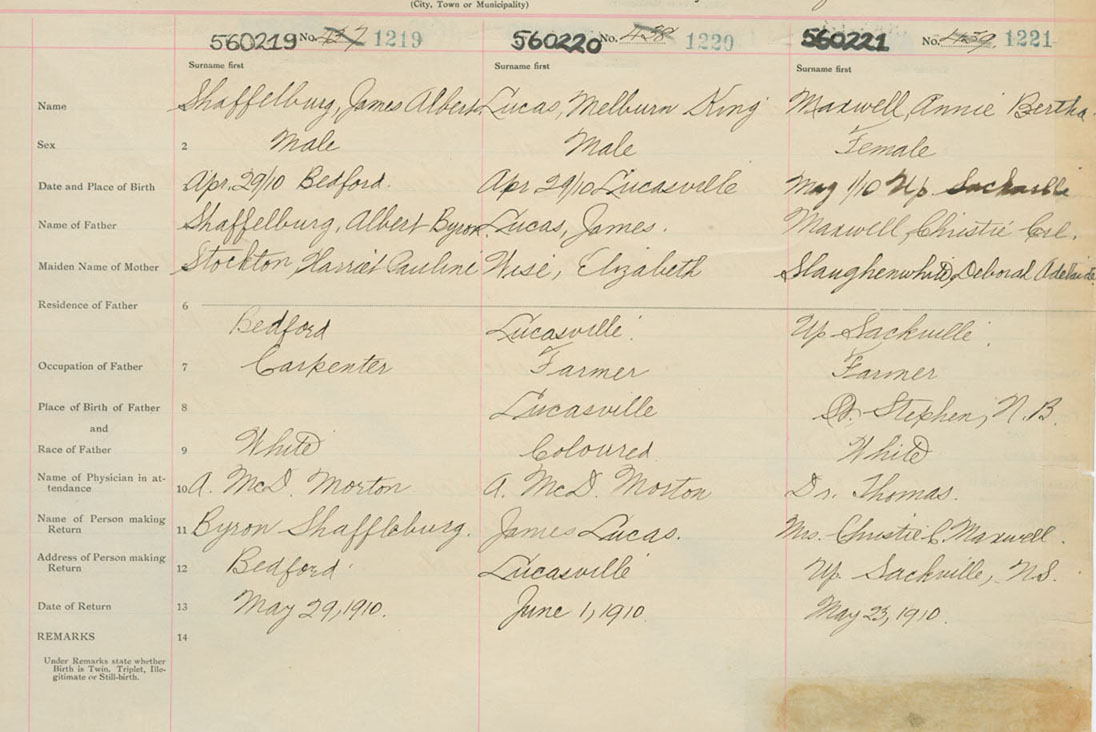 (City, Town or Municipality)
560219 No. 437 1219 560220 No. 438 1220 560221 No. 439 1221
Surname first Surname first Surname first
Name 1 Shaffelburg, James Albert Lucas, Melburn King Maxwell, Annie Bertha
Sex 2 Male Male Female
Date and Place of Birth Apr. 29/10 Bedford. Apr 29/10 Lucasville May 1/10 Up Sackville
Name of Father Shaffelburg, Albert Byron Lucas, James. Maxwell, Christie
Maiden Name of Mother Stockton, Harriet Pauline Wise, Elizabeth Slaughenwhite, Deborah Adelaide
Residence of Father 6
Bedford Lucasville. Up Sackville.
Occupation of Father 7 Carpenter Farmer Farmer
Place of Birth of Father 8 Lucasville St. Stephen, N.B.
and
Race of Father 9 White Coloured White
Name of Physician in at-
tendance 10 A. McD. Morton A. McD. Morton Dr. Thomas.
Name of Person making
Return 11 Byron Shaffleburg. James Lucas. Mrs. Christie C Maxwell.
Address of Person making
Return 12 Bedford Lucasville Up Sackville, N.S.
Date of Return 13 May 29, 1910. June 1, 1910. May 23, 1910.
REMARKS 14
Under Remarks state whether
Birth is Twin, Triplet, Ille-
gitimate or Still-birth.